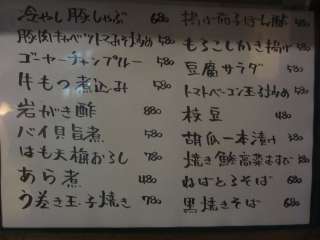 冷やし豚しゃぶ 680
豚肉キャベツトマトみそ炒め 580
ゴーヤーチャンプルー 580
牛もつ煮込み 580
岩がき酢 880
バイ貝旨煮 580
はも天梅おろし 780
あら煮 480
う巻き玉子焼き 780
揚げ茄子ぽん酢 480
もろこしかき揚げ
豆腐サラダ 580
トマトベーコン玉子炒め 580
枝豆 480
胡瓜一本漬け 380
焼き鯵高菜むすび 380
ねばとろそば 680
黒焼きそば 680